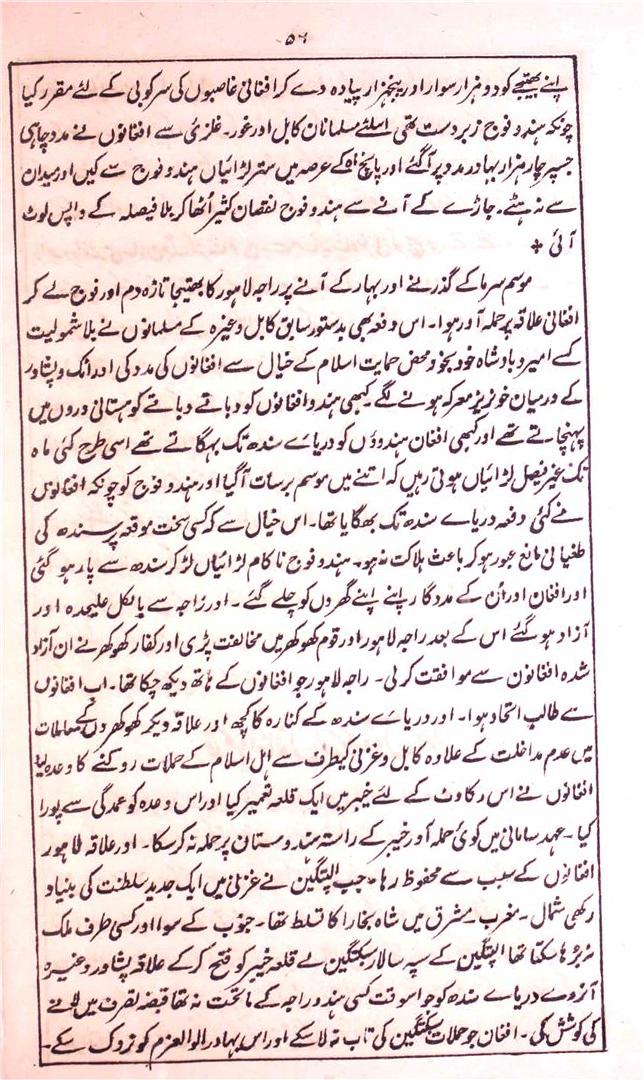 ۵۶
اپنے بھتیجے کو دو ہزار سوار اور پنجہزار پیادہ دے کر افغانی غاصبوں کی سرکوبی کے لئے مقرر کیا
چونکہ ہندو فوج زبردست تھی اسلئے مسلمانان کابل اور غور۔ غلزئی سے افغانوں نے مدد چاہی
جسپر چار ہزار بہادر مدد پر آگئے اور پانچ ماہ کے عرصہ میں ستر لڑائیاں ہندو فوج سے کیں اور میدان
سے نہ ہٹے۔ جاڑے کے آنے سے ہندو فوج نقصان کثیر اُٹھا کر بلا فیصلہ کے واپس لوٹ
آئی +
موسم سرما کے گذرنے اور بہار کے آنے پر راجہ لاہور کا بھتیجا تازہ دم اور فوج لے کر
افغانی علاقہ پر حملہ آور ہوا۔ اس دفعہ بھی بدستور سابق کابل وغیرہ کے مسلمانوں نے بلا شمولیت
کسے امیر و بادشاہ خود بخود محض حمایت اسلام کے خیال سے افغانوں کی مدد کی اور اٹک و پشاور
کے درمیان خونریز معرکہ ہونے لگے۔ کبھی ہندو افغانوں کو دباتے دباتے کوہستانی دروں میں
پہنچاتے تھے اور کبھی افغان ہندوؤں کو دریاے سندھ تک بہگاتے تھے اسی طرح کئی ماہ
تک غیر فیصل لڑائیاں ہوتی رہیں کہ اتنے میں موسم برسات آگیا اور ہندو فوج کو چونکہ افغانوں
نے کئی دفعہ دریاے سندھ تک بھگایا تھا۔ اس خیال سے کہ کسی سخت موقعہ پر سندھ کی
طغیانی مانع عبور ہو کر باعث ہلاکت نہ ہو۔ ہندو فوج ناکام لڑائیاں لڑ کر سندھ سے پار ہو گئی
اور افغان اور اُن کے مددگار اپنے اپنے گھروں کو چلے گئے۔ اور راجہ سے بالکل علیحدہ اور
آزاد ہو گئے اس کے بعد راجہ لاہور اور قوم کھوکھر میں مخالفت پڑی اور کفار کھوکھر نے ان آزاد
شدہ افغانون سے موافقت کرلی۔ راجہ لاہور جو افغانوں کے ہاتھ دیکھ چکا تھا۔ اب افغانوں
سے طالب اتحاد ہوا۔ اور دریاے سندھ کے کنارہ کا کچھ اور علاقہ دیکر کھوکھروں کے معاملات
میں عدم مداخلت کے علاوہ کابل و غزنی کیطرف سے اہل اسلام کے حملات روکنے کا وعدہ لیا
افغانوں نے اس رکاوٹ کے لئے خیبر میں ایک قلعہ تعمیر کیا اور اس وعدہ کو عمدگی سے پورا
کیا۔ عہد سامانی میں کوئی حملہ آور خیبر کے راستہ ہندوستان پر حملہ نہ کر سکا۔ اور علاقہ لاہور
افغانوں کے سبب سے محفوظ رہا۔ جب الپتگین نے غزنی میں ایک جدید سلطنت کی بنیاد
رکھی شمال۔ مغرب۔ مشرق میں شاہ بخارا کا تسلط تھا۔ جنوب کے سوا اور کسی طرف ملک
نہ بڑہا سکتا تھا الپتگین کے سپہ سالار سبکتگین نے قلعہ خیبر کو فتح کر کے علاقہ پشاور وغیرہ
آنروے دریاے سندھ کو جو اسوقت کسی ہندو راجہ کے ماتحت نہ تھا قبضہ تصرف میں لانے
کی کوشش کی۔ افغان جو حملات سبکتگین کی تاب نہ لا سکے اور اس بہادر الوالعزم کو نہ روک سکے۔